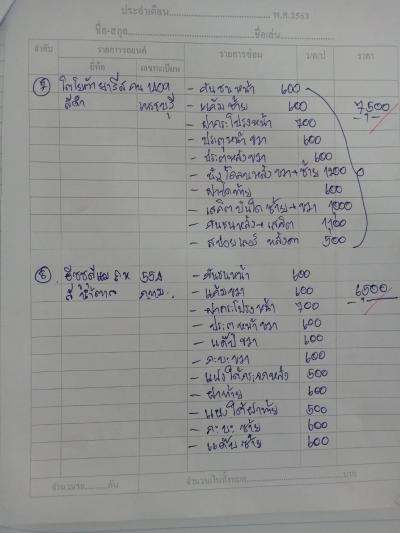 ประจำเดือน.................................พ.ศ.2563
ชื่อ-สกุล.................................ชื่อเล่น.................
ลำดับ รายการรถยนต์ รายการซ่อม ข/ค/ป ราคา
ยี่ห้อ เลขทะเบียน
โตโยต้า ยาริส - กันชนหน้า 600
สีดำ เพชรบุรี - แก้มซ้าย 600 7,500
- ฝากระโปรงหน้า 700
- ประตูหน้าขวา 600
- ประตูหลังขวา 600
- ขวา+ซ้าย 1200
- ฝาปิดท้าย 600
- สเกิตบันไดซ้าย+ขวา 1000
- กันชนหลัง+สเกิต 1,100
- สปอยเลอร์ หลังคา 500
6 อีซูซุดีแม 551 - กันชนหน้า 600
สีน้ำตาล กทม. - แก้มขวา 600 6,500
- ฝากระโปรงหน้า 700
- ประตูหน้าขวา 600
- แค๊ปขวา 600
- กะบะขวา 600
- แผงใต้กระจกหลัง 500
- ฝาท้าย 600
- แผงใต้ฝาท้าย 500
- กะบะซ้าย 600
- แค๊ปซ้าย 600
จำนวนรถ...........คัน จำนวนเงินทั้งหมด.................................บาท